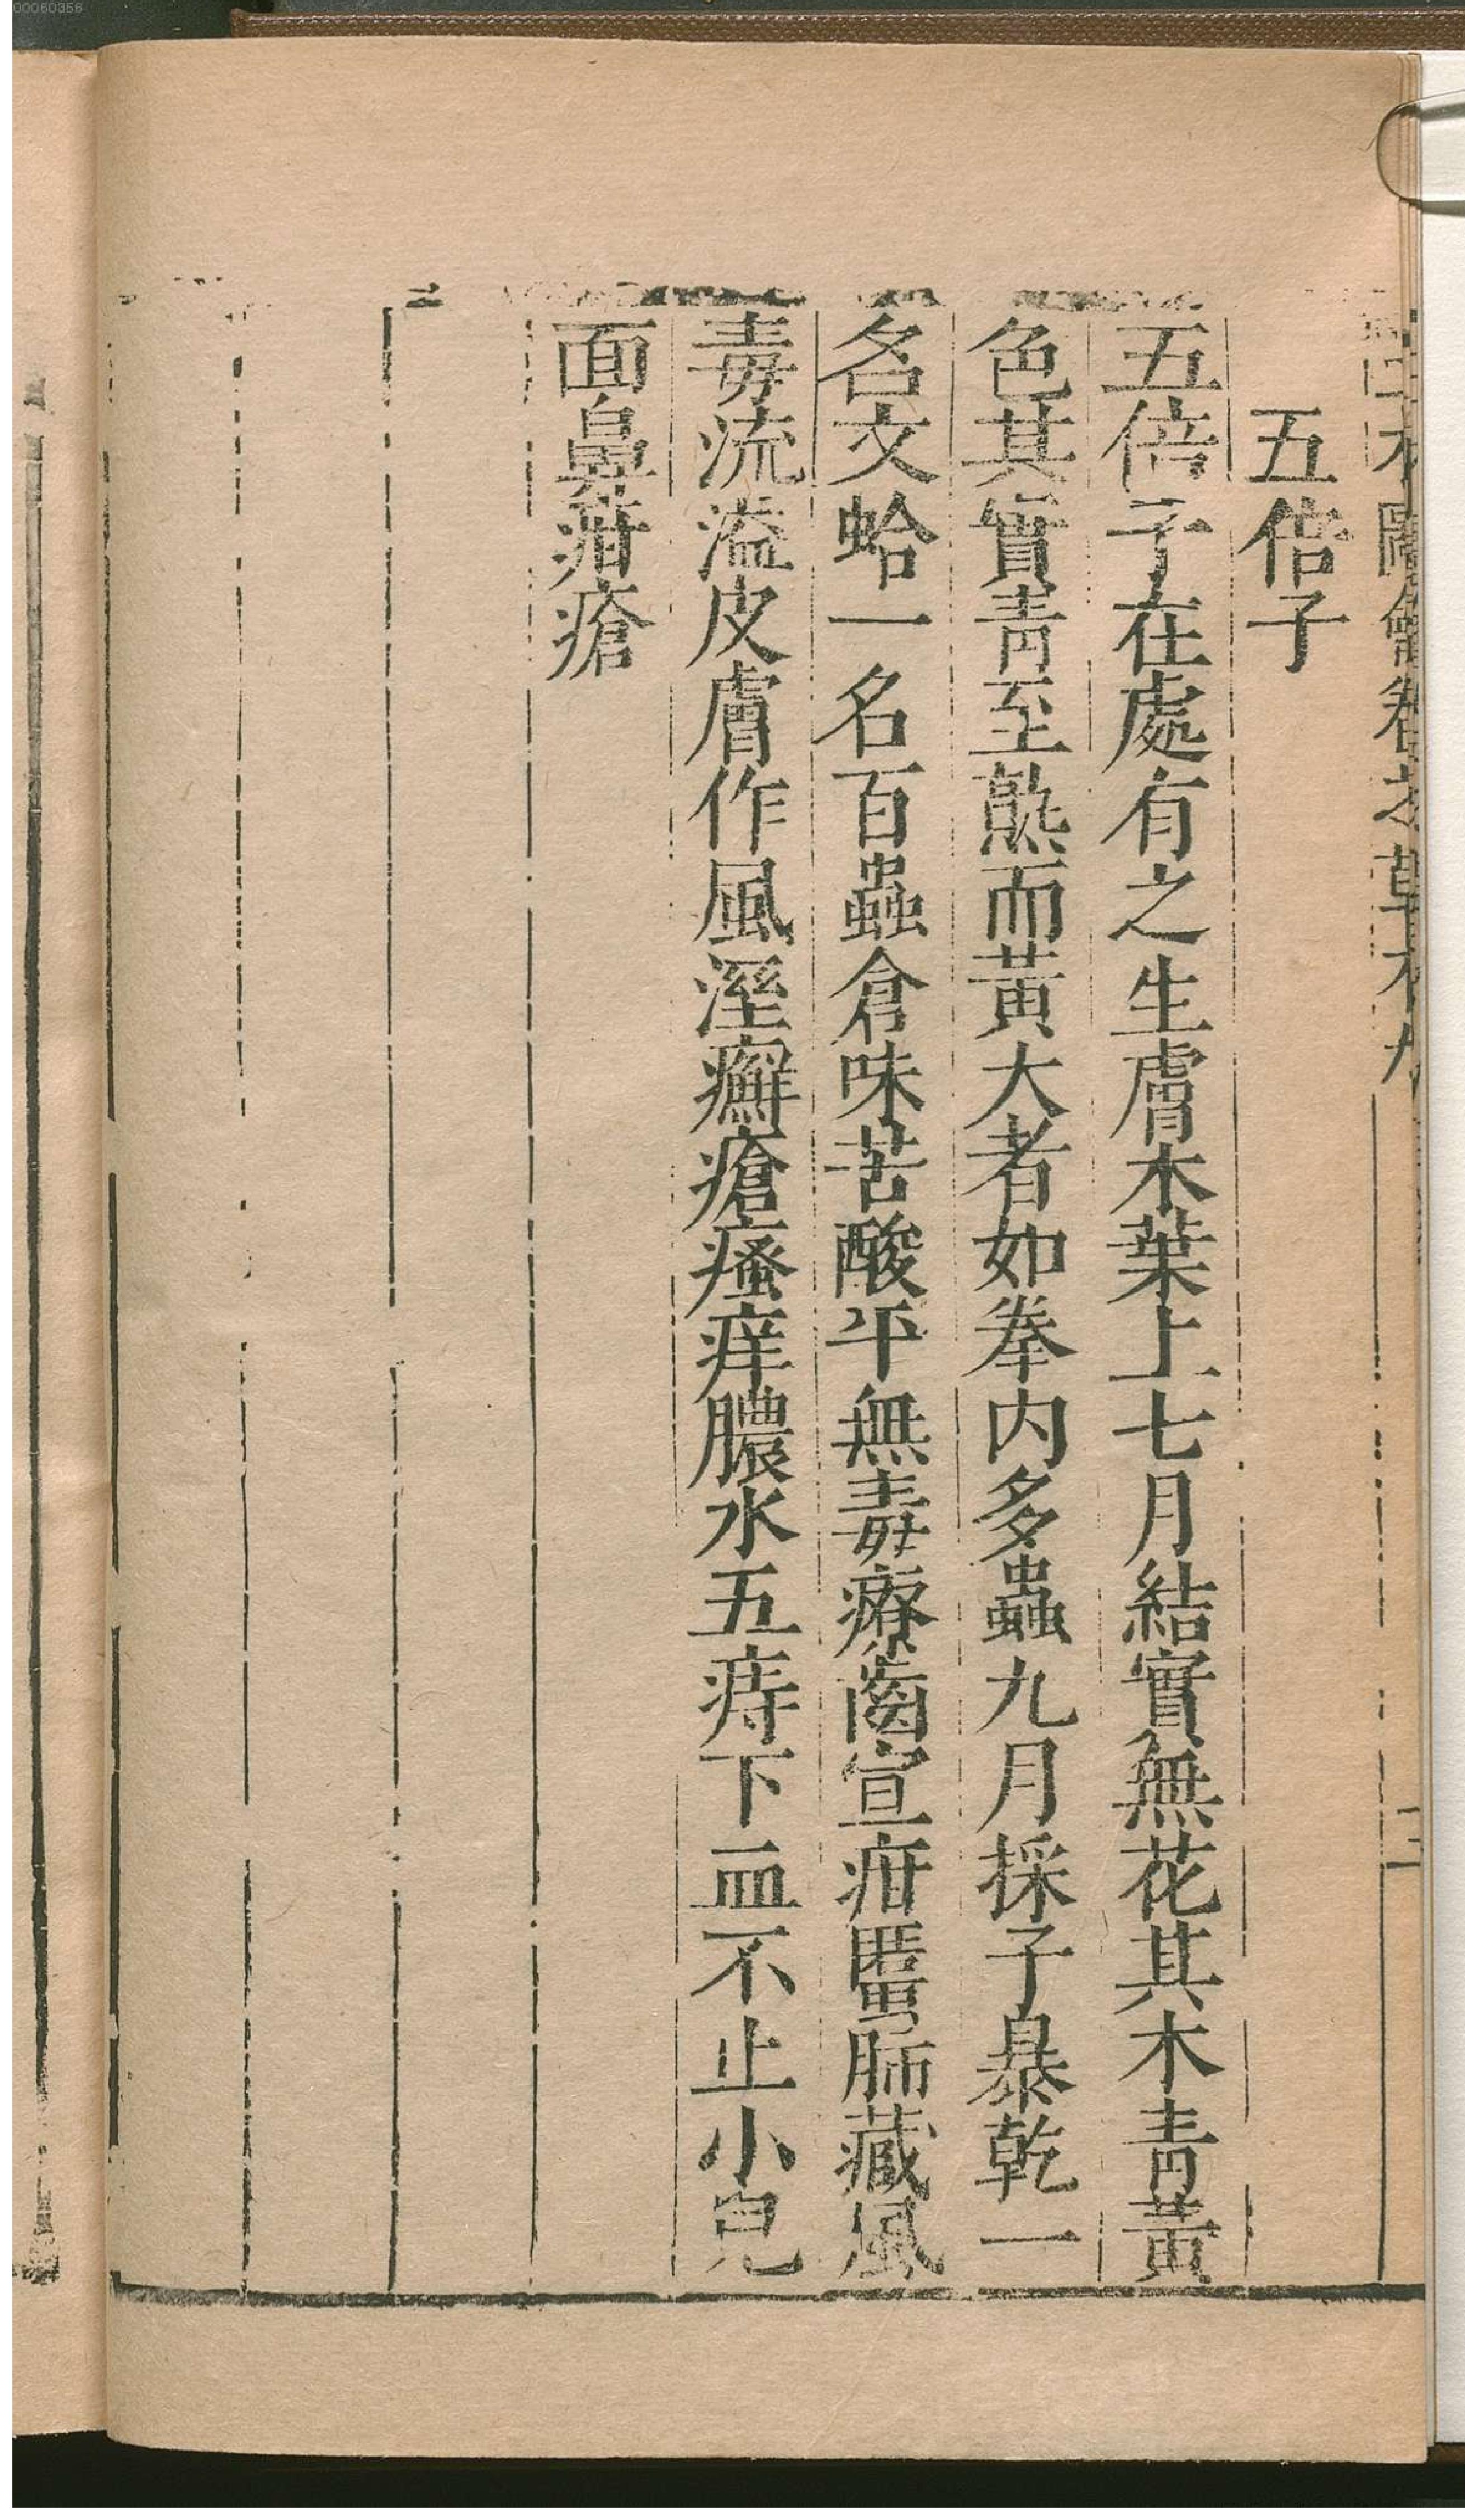 00060358
五倍子
五倍子在處有之生膚木葉上七月結實無花其木青黃
色其實青至熟而黃大者如拳内多蟲九月採子暴乾一
名文蛤一名百蟲倉味苦酸平無毒療齒宣疳䘌肺藏風
毒流溢皮膚作風溼癬瘡瘙痒膿水五痔下血不止小兒
面鼻疳瘡